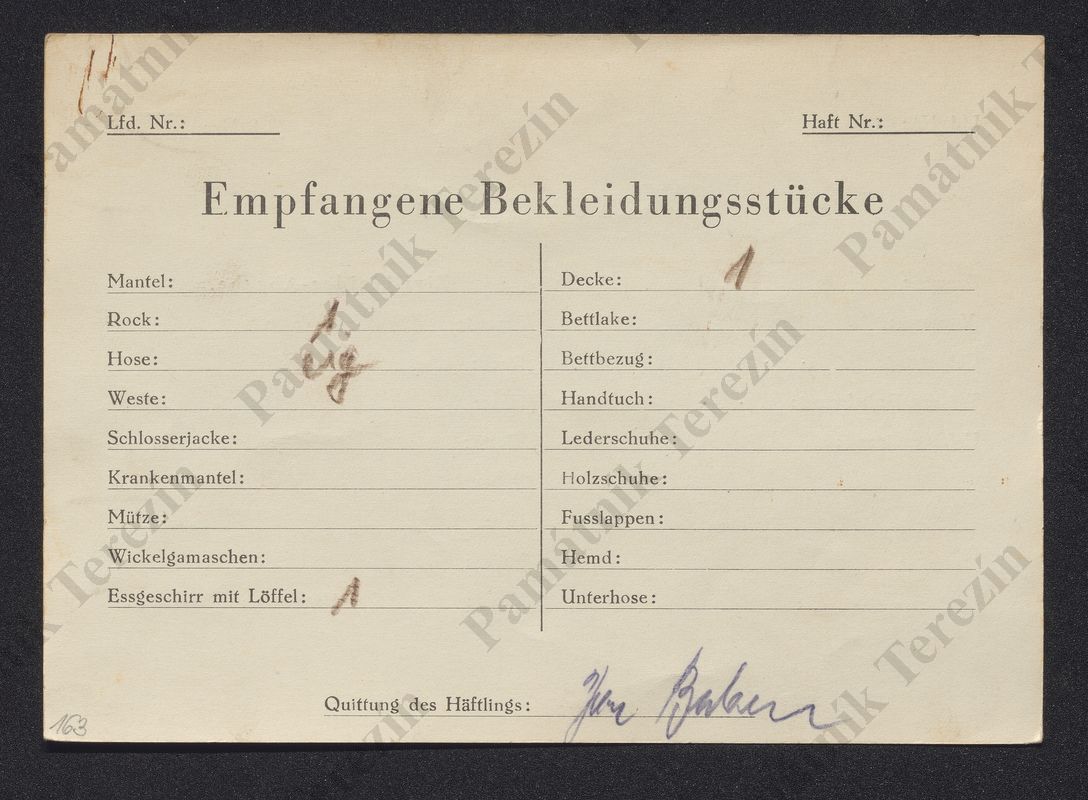 Lfd. Nr.:
Haft Nr.:
Empfangene Bekleidungsstücke
Mantel:
Rock: 1
Hose: eig
Weste:
Schlosserjacke:
Krankenmantel:
Mütze:
Wickelgamaschen:
Essgeschirr mit Löffel: 1
Decke: 1
Bettlake:
Bettbezug:
Handtuch:
Lederschuhe:
Holzschuhe:
Fusslappen:
Hemd:
Unterhose:
Quittung des Häftlings:
163
Památník Terezín